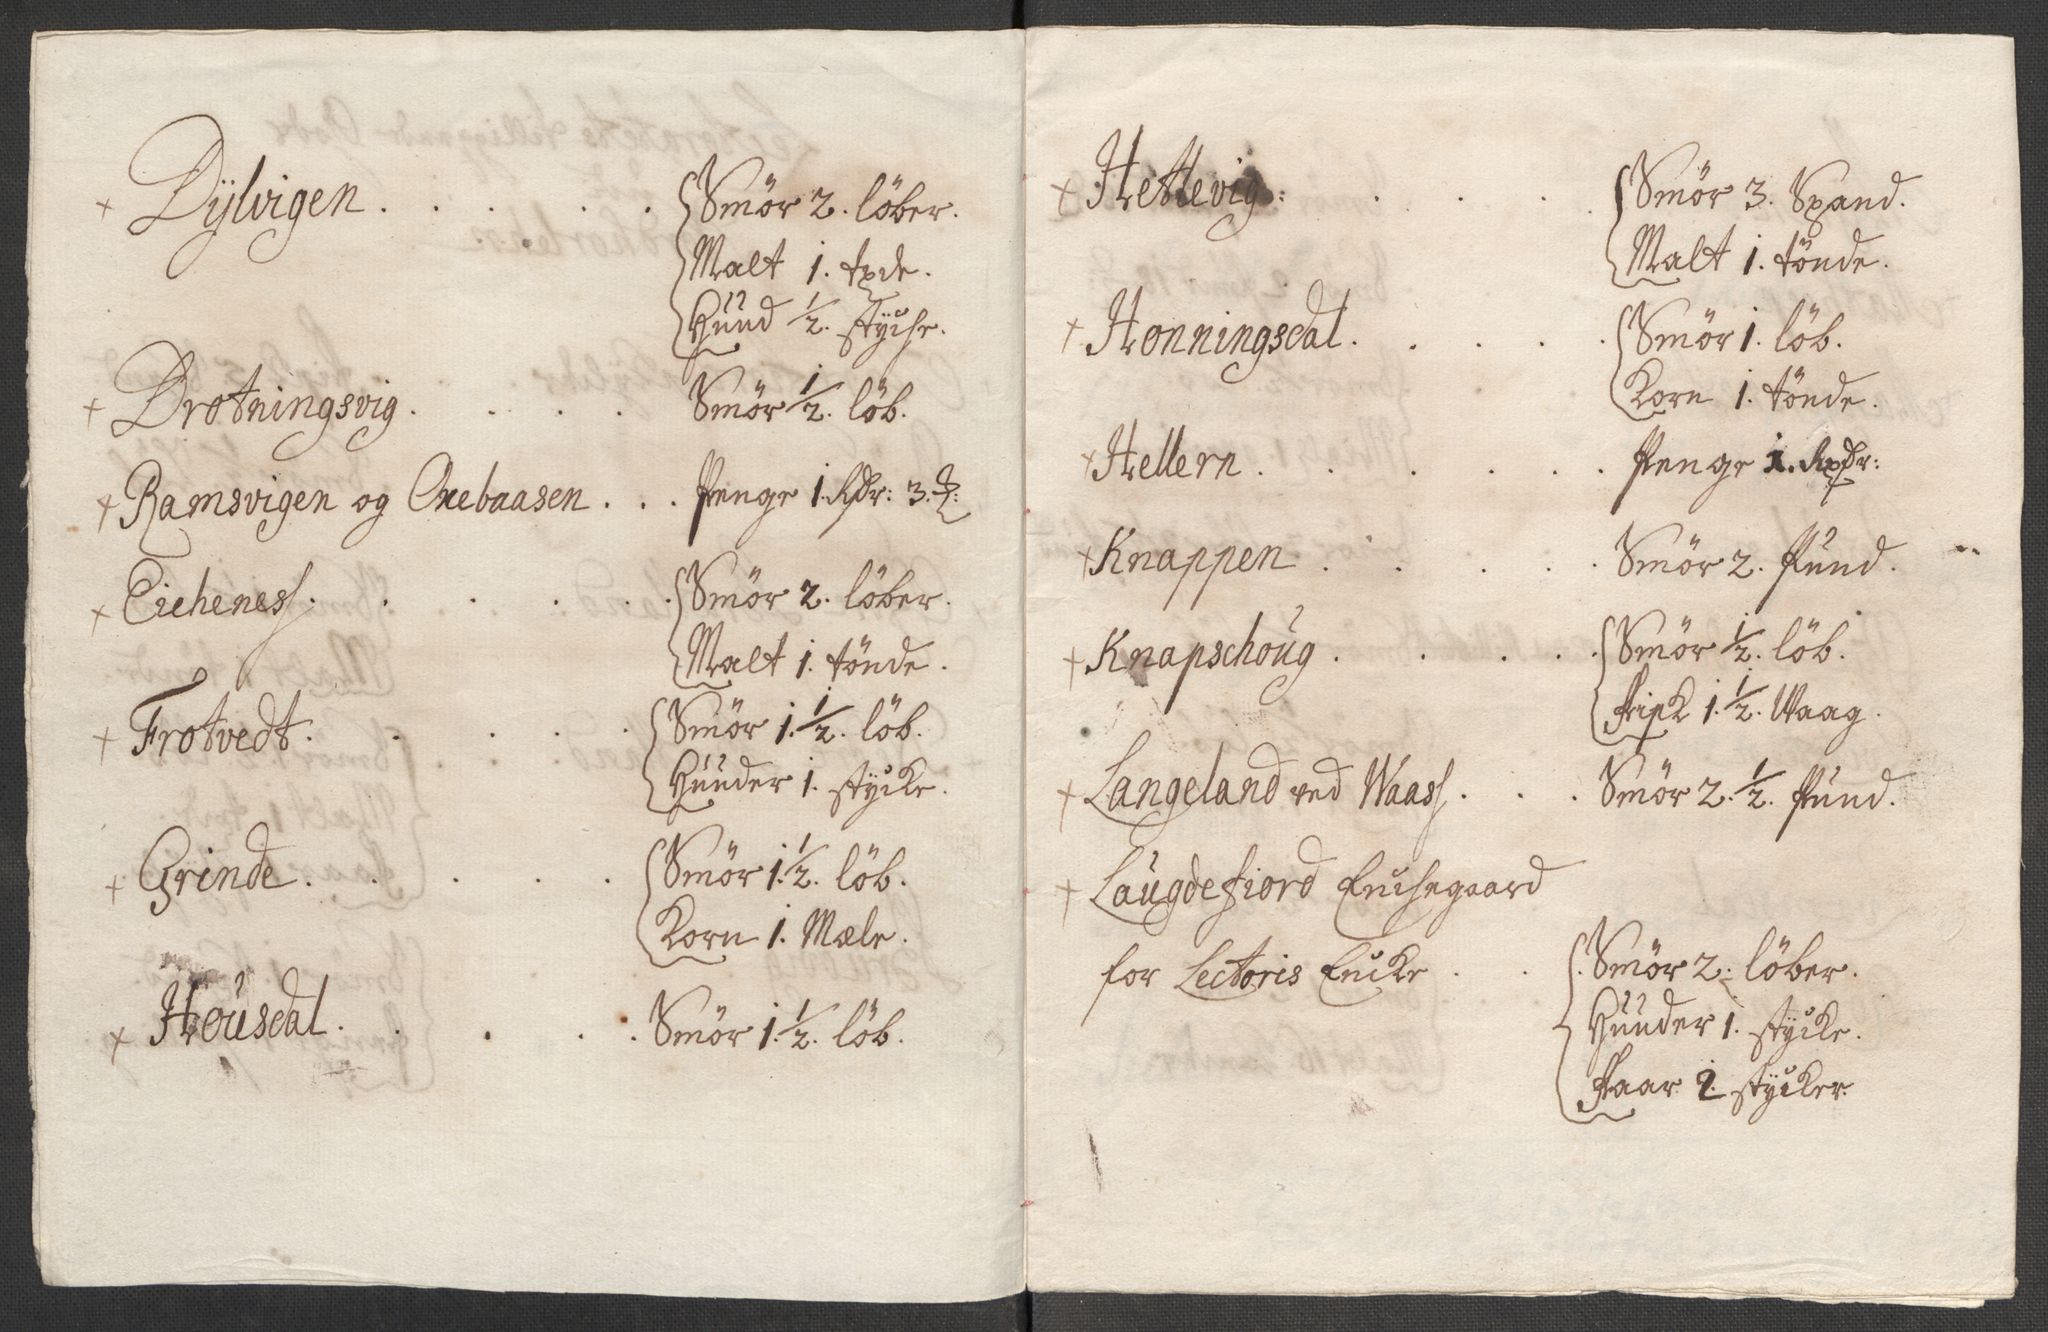 + Dylvigen . . . . . . Smör 2. löber.
Malt 1. txde.
Huud 1/2. styche.
+ Drotningsvig . . . . Smör 1/2. löb.
+ Ramsvigen og Oxebaasen . . . Penge 1. Rdr: 3. ß:
+ Eicheness . . . . . . Smör 2. löber.
Malt 1. tönde.
+ Frotvedt . . . . . Smör 1. 1/2. löb.
Huuder 1. stycke.
+ Grinde . . . . . Smör 1. 1/2. löb.
Korn 1. Mæle.
+ Housdal . . . . . Smör 1. 1/2. löb.
+ Hettevig: . . . . . Smör 3. Spand.
Malt 1. tönde.
+ Honningsdal . . . . . Smör 1. löb.
Korn 1. tönde.
+ Hellern . . . . . . Penge 1. Rxdr:
+ Knappen . . . . . Smör 2. Pund.
+ Knapschoug . . . . . Smör 1/2. löb.
Fisk 1. 1/2. Waag.
+ Langeland ved Waass . . . Smör 2. 1/2. Pund.
+ Laugdefiord Enchegaard
for Lectoris Encke . . Smör 2. löber.
Huuder 1. stycke.
Faar 2 stycker.